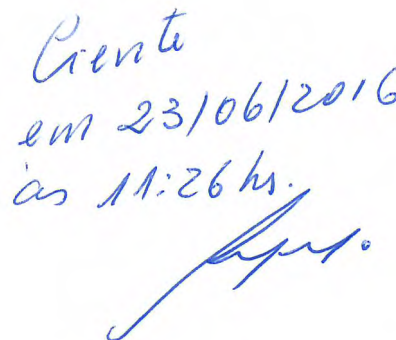 Ciente
em 23/06/2016
às 11:26 hs.